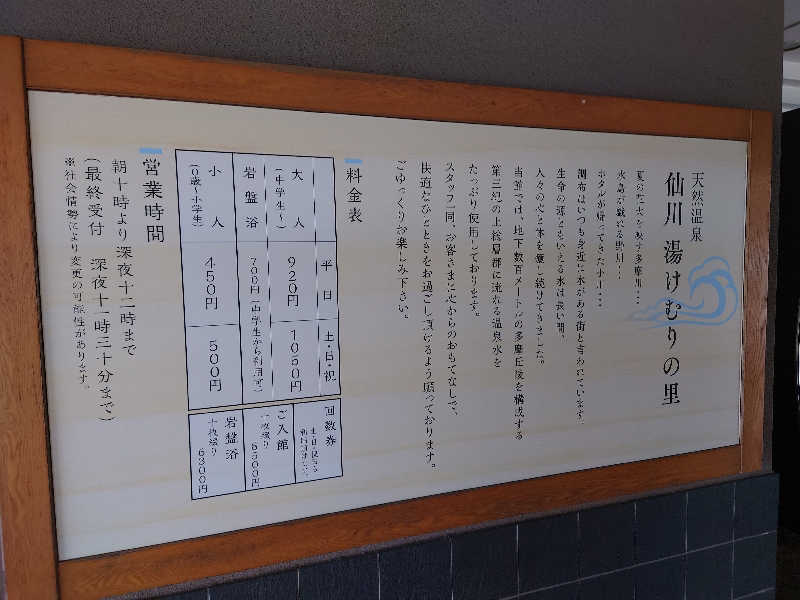 天然温泉
仙川 湯けむりの里
夏の花火を映す多摩川…
水鳥が戯れる野川…
ホタルが帰ってきた小川…
調布はいつも身近に水がある街と言われています。
生命の源ともいえる水は長い間、
人々の心と体を癒し続けてきました。
当館では、地下数百メートルの多摩丘陵を構成する
第三紀の上総層群に流れる温泉水を
たっぷり使用しております。
スタッフ一同、お客さまに心からのおもてなしで、
快適なひとときをお過ごし頂けるよう願っております。
ごゆっくりお楽しみ下さい。
料金表
平日
土・日・祝
大人
(中学生〜)
920円
1050円
岩盤浴
700円(中学生から利用可)
小人
(0歳〜小学生)
450円
500円
回数券
ご入館
十枚綴り
8500円
岩盤浴
十枚綴り
6300円
営業時間
朝十時より深夜十二時まで
(最終受付 深夜十一時三十分まで)
※社会情勢により変更の可能性があります。